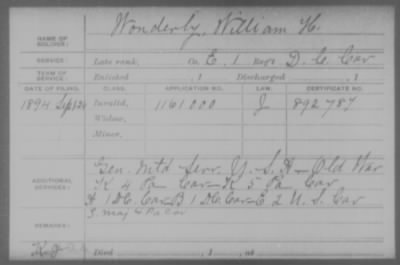 NAME OF SOLDIER: Wonderly, William H.
SERVICE: Late rank, Co. E, 1 Reg't D.C. Cav
TERM OF SERVICE: Enlisted , 1 Discharged , 1
DATE OF FILING. CLASS. APPLICATION NO. LAW. CERTIFICATE NO.
1894 Sept 24 Invalid, 1161000 J 892787
Widow,
Minor,
Gen. Mtd Serv. U.S.A - Old War
ADDITIONAL SERVICES: K 4 Pa Cav - K 5 Pa Cav
H 1 DC Cav - B 1 DC Cav - E 2 U.S. Cav
S. maj 4 Pa Cav
REMARKS:
Died , 1 , at